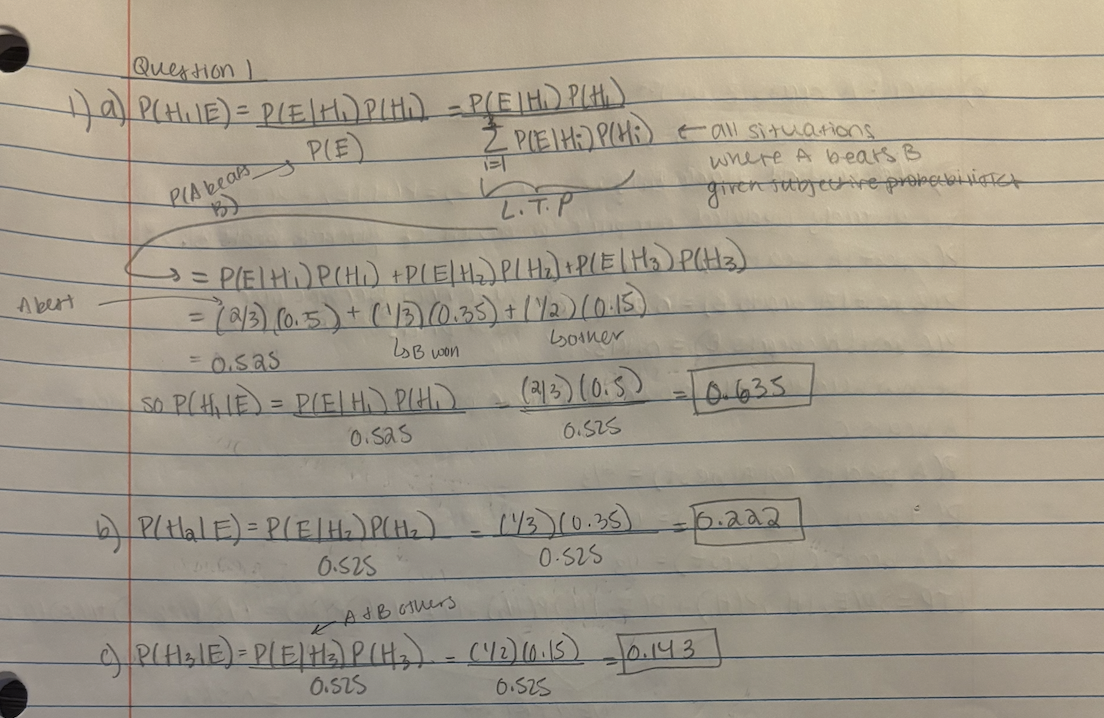 Question 1
1) a) P(H₁|E) = P(E|H₁)P(H₁) / P(E) = P(E|H₁)P(H₁) / Σ³ᵢ₌₁ P(E|Hᵢ)P(Hᵢ) ← all situations
where A bears B
given subjective probabilities
P(A bears B)
L.T.P
= P(E|H₁)P(H₁) + P(E|H₂)P(H₂) + P(E|H₃)P(H₃)
= (2/3)(0.5) + (1/3)(0.35) + (1/2)(0.15)
↳B won
= 0.525
so P(H₁|E) = P(E|H₁)P(H₁) / 0.525 = (2/3)(0.5) / 0.525 = 0.635
b) P(H₂|E) = P(E|H₂)P(H₂) / 0.525 = (1/3)(0.35) / 0.525 = 0.222
A & B others
c) P(H₃|E) = P(E|H₃)P(H₃) / 0.525 = (1/2)(0.15) / 0.525 = 0.143